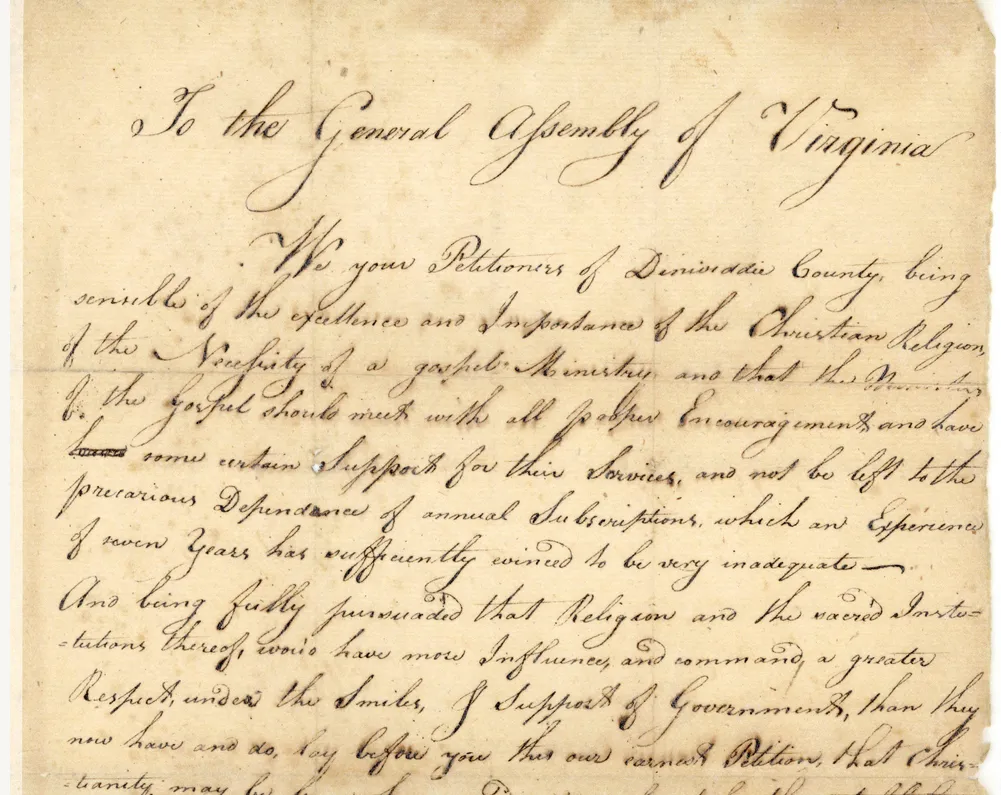 To the General Assembly of Virginia
We your Petitioners of Dinwiddie County, being
sensible of the excellence and Importance of the Christian Religion,
of the Necessity of a gospel-Ministry and that the Ministers
of the Gospel should meet with all proper Encouragement, and have
some certain Support for their Services, and not be left to the
precarious Dependance of annual Subscriptions, which an Experience
of seven Years has sufficiently evinced to be very inadequate —
And being fully pursuaded that Religion and the sacred Insti-
-tutions thereof, would have more Influence, and command, a greater
Respect, under the Smiles, & Support of Government, than they
now have and do, lay before you this our earnest Petition, that Chris-
-tianity, may be